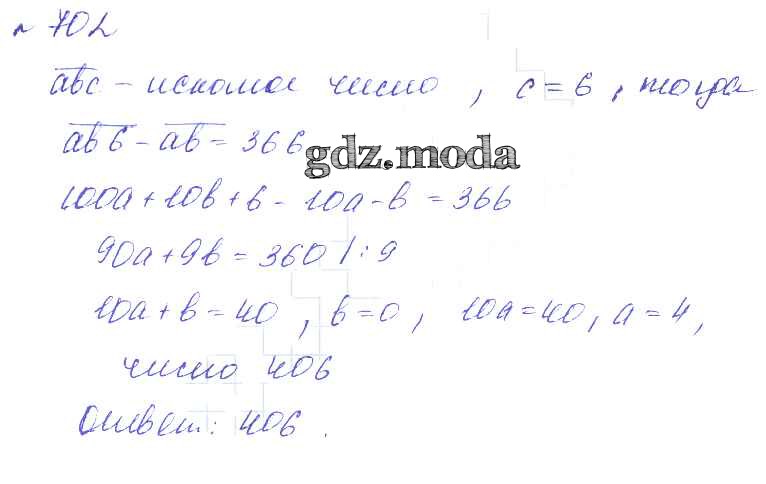 № 702
abc - искомое число, c = 6, тогда
ab6 - ab = 366
gdz.moda
100a + 10b + 6 - 10a - b = 366
90a + 9b = 360 / : 9
10a + b = 40, b = 0, 10a = 40, a = 4,
число 406
Ответ: 406.